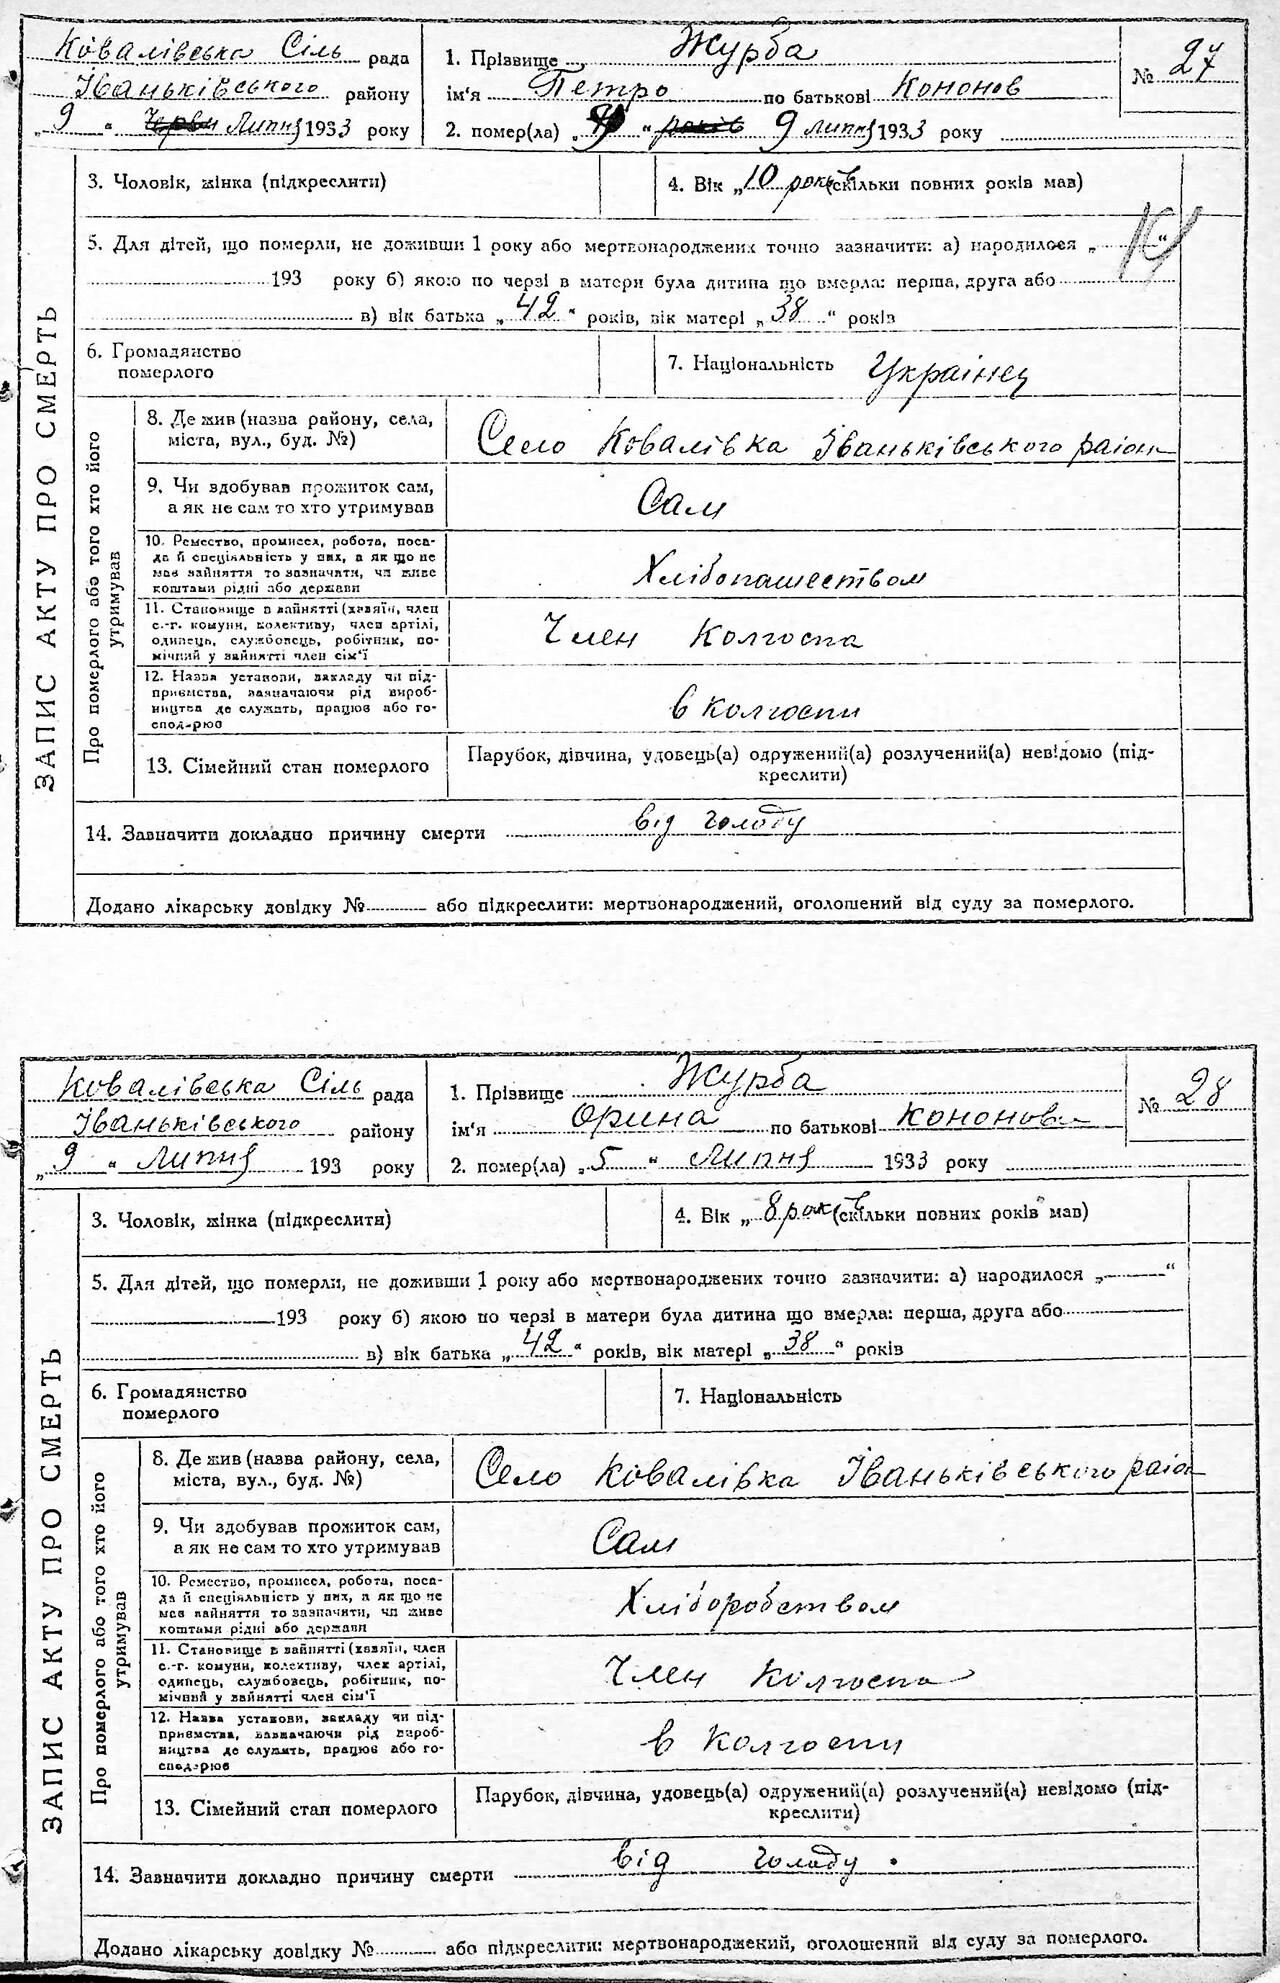 Ковалівська Сіль рада
Іваньківського району
„ 9 “ Черви Липня 1933 року
1. Прізвище Журба
ім‘я Петро по батькові Кононов
2. помер(ла) „ “ років 9 липня 1933 року
№ 27
ЗАПИС АКТУ ПРО СМЕРТЬ
3. Чоловік, жінка (підкреслити)
4. Вік „ 10 років (скільки повних років мав)
5. Для дітей, що померли, не доживши 1 року або мертвонароджених точно зазначити: а) народилося „ “
193 року б) якою по черзі в матери була дитина що вмерла: перша, друга або
в) вік батька „ 42 “ років, вік матері „ 38 “ років
6. Громадянство
померлого
7. Національність Украінец
Про померлого або того хто його
утримував
8. Де жив (назва району, села,
міста, вул., буд. №)
Село Ковалівка Іваньківського район
9. Чи здобував прожиток сам,
а як не сам то хто утримував
Сам
10. Ремество, промисел, робота, поса-
да й спеціяльність у них, а як що не
мав зайняття то зазначити, чи живе
коштами рідні або держави
Хлібопашеством
11. Становище в зайнятті (хазяїн, член
с.-г. комуни, колективу, член артілі,
одинець, службовець, робітник, по-
мічний у зайнятті член сім‘ї
Член Колгоспа
12. Назва установи, закладу чи під-
приємства, зазначаючи рід вироб-
ництва де служить, працює або го-
сподарює
в колгоспи
13. Сімейний стан померлого
Парубок, дівчина, удовець(а) одружений(а) розлучений(а) невідомо (під-
креслити)
14. Зазначити докладно причину смерти від голоду
Додано лікарську довідку № або підкреслити: мертвонароджений, оголошений від суду за померлого.
Ковалівська Сіль рада
Іваньківського району
„ 9 “ Липня 193 року
1. Прізвище Журба
ім‘я Орина по батькові Кононова
2. помер(ла) „ 5 “ Липня 1933 року
№ 28
ЗАПИС АКТУ ПРО СМЕРТЬ
3. Чоловік, жінка (підкреслити)
4. Вік „ 8 років (скільки повних років мав)
5. Для дітей, що померли, не доживши 1 року або мертвонароджених точно зазначити: а) народилося „ “
193 року б) якою по черзі в матери була дитина що вмерла: перша, друга або
в) вік батька „ 42 “ років, вік матері „ 38 “ років
6. Громадянство
померлого
7. Національність
Про померлого або того хто його
утримував
8. Де жив (назва району, села,
міста, вул., буд. №)
Село Ковалівка Іваньківського район
9. Чи здобував прожиток сам,
а як не сам то хто утримував
Сам
10. Ремество, промисел, робота, поса-
да й спеціяльність у них, а як що не
мав зайняття то зазначити, чи живе
коштами рідні або держави
Хліборобством
11. Становище в зайнятті (хазяїн, член
с.-г. комуни, колективу, член артілі,
одинець, службовець, робітник, по-
мічний у зайнятті член сім‘ї
Член Колгоспа
12. Назва установи, закладу чи під-
приємства, зазначаючи рід вироб-
ництва де служить, працює або го-
сподарює
в Колгоспи
13. Сімейний стан померлого
Парубок, дівчина, удовець(а) одружений(а) розлучений(а) невідомо (під-
креслити)
14. Зазначити докладно причину смерти від голоду.
Додано лікарську довідку № або підкреслити: мертвонароджений, оголошений від суду за померлого.